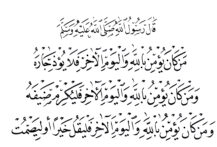 قَالَ رَسُولُ اللَّهِ صَلَّى اللَّهُ عَلَيْهِ وَسَلَّمَ
مَنْ كَانَ يُؤْمِنُ بِاللَّهِ وَالْيَوْمِ الْآخِرِ فَلَا يُؤْذِ جَارَهُ
وَمَنْ كَانَ يُؤْمِنُ بِاللَّهِ وَالْيَوْمِ الْآخِرِ فَلْيُكْرِمْ ضَيْفَهُ
وَمَنْ كَانَ يُؤْمِنُ بِاللَّهِ وَالْيَوْمِ الْآخِرِ فَلْيَقُلْ خَيْرًا أَوْ لِيَصْمُتْ